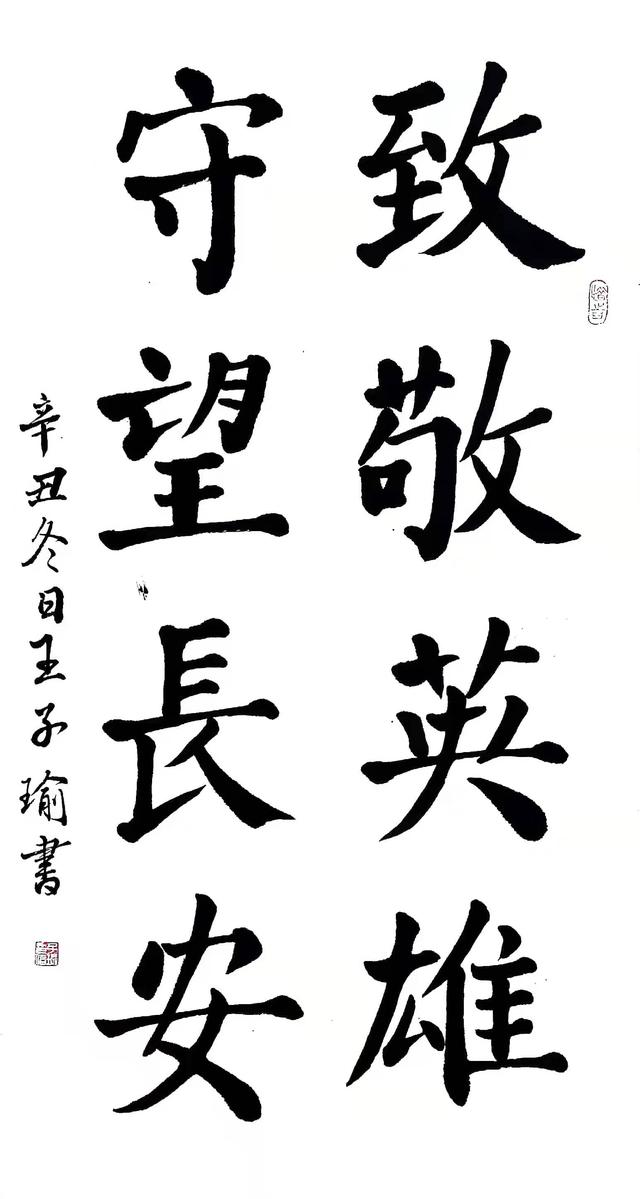 致敬英雄
守望長安
辛丑冬日王子瑜書